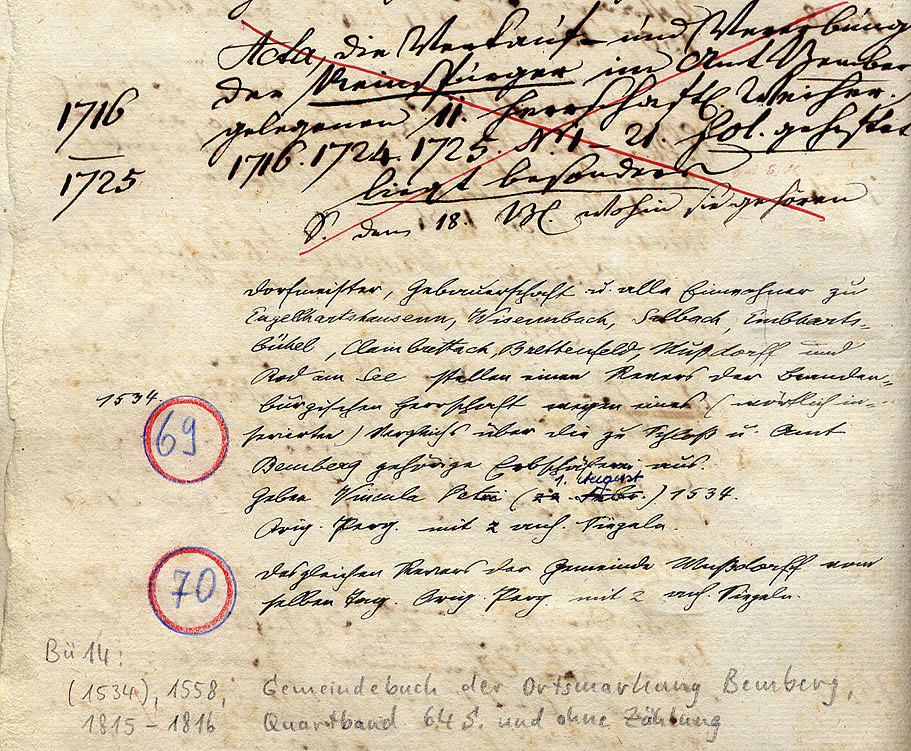 Acta, die Verkauf- und Vererbung
der Reinsbürger im Amt Bember
gelegenen 11. herrschaftl. Weiher.
1716
1725
1716. 1724. 1725. N. 1 – 21. fol. geheftet
liegt besonders
S. dem 18. wohin sie gehören
Dorfmeister, Gebauerschaft u. alle Einwohner zu
Engelhartshausenn, Wisennbach, Selbach, Embharts-
bühel, Clainbrettach, Brettenfeld, Mußdorff und
Rod am See stellen einen Revers der Branden-
1534.
burgischen Herrschaft wegen eines (wörtlich in-
69
serierten) Vergleichs über die zu Schloß u. Amt
Bemberg gehörige Erbschäferei aus.
1. August
Geben Vincula Petri (22. Febr.) 1534.
Orig. Perg. mit 2 anh. Siegeln.
70
Desgleichen Revers der Gemeinde Mußdorff vom
selben Tag. Orig. Perg. mit 2 anh. Siegeln.
Bü 14:
(1534), 1558, Gemeindebuch der Ortsmarkung Bemberg,
1815 – 1816 Quartband 64 S. und ohne Zählung